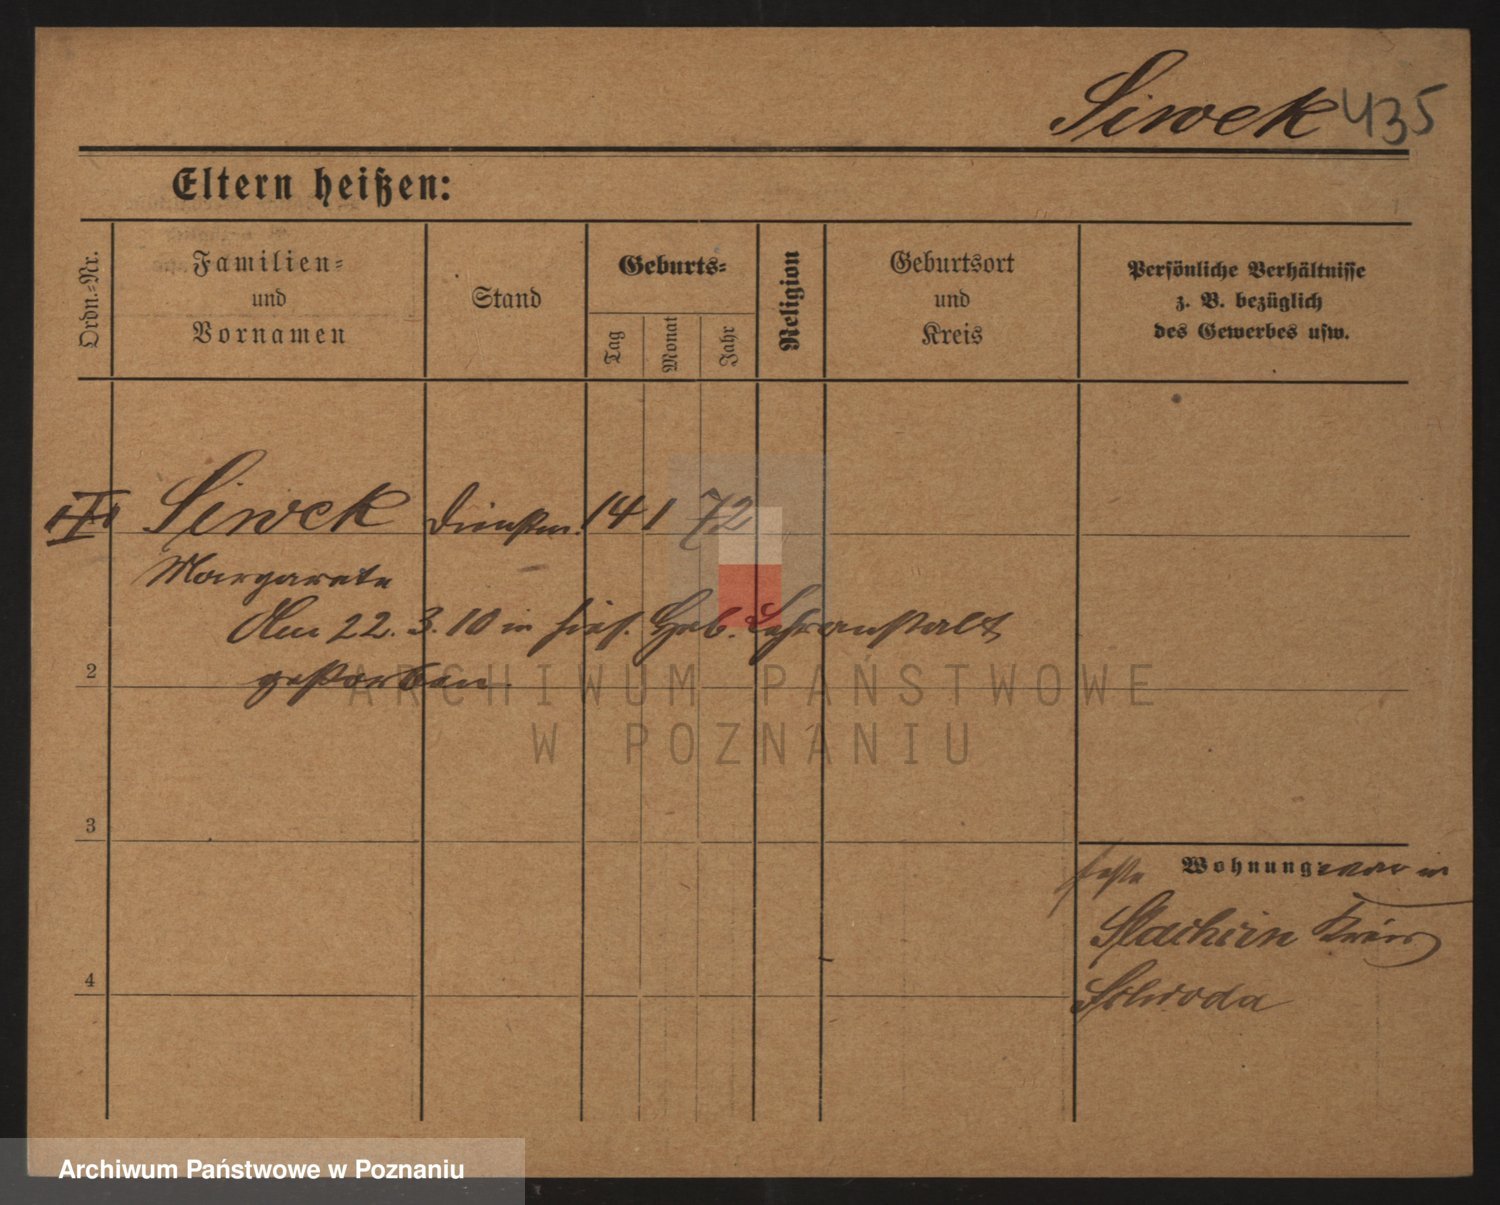 Siwek 435
Eltern heißen:
Ordn.-Nr.
Familien-
und
Vornamen
Stand
Geburts-
Tag
Monat
Jahr
Religion
Geburtsort
und
Kreis
Persönliche Verhältnisse
z. B. bezüglich
des Gewerbes usw.
Siwek Dienstm. 14 1 72
Margarete
Am 22. 3. 10 in hies. Heb. Lehranstalt
gestorben.
2
3
4
feste Wohnung: war in
Stachcin Kreis
Schroda
ARCHIWUM PAŃSTWOWE
W POZNANIU
Archiwum Państwowe w Poznaniu